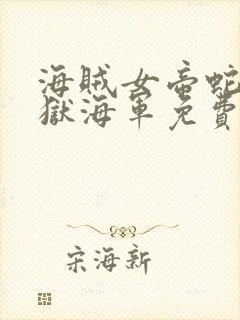 海賊女帝蛇
獄海軍免費
宋海新